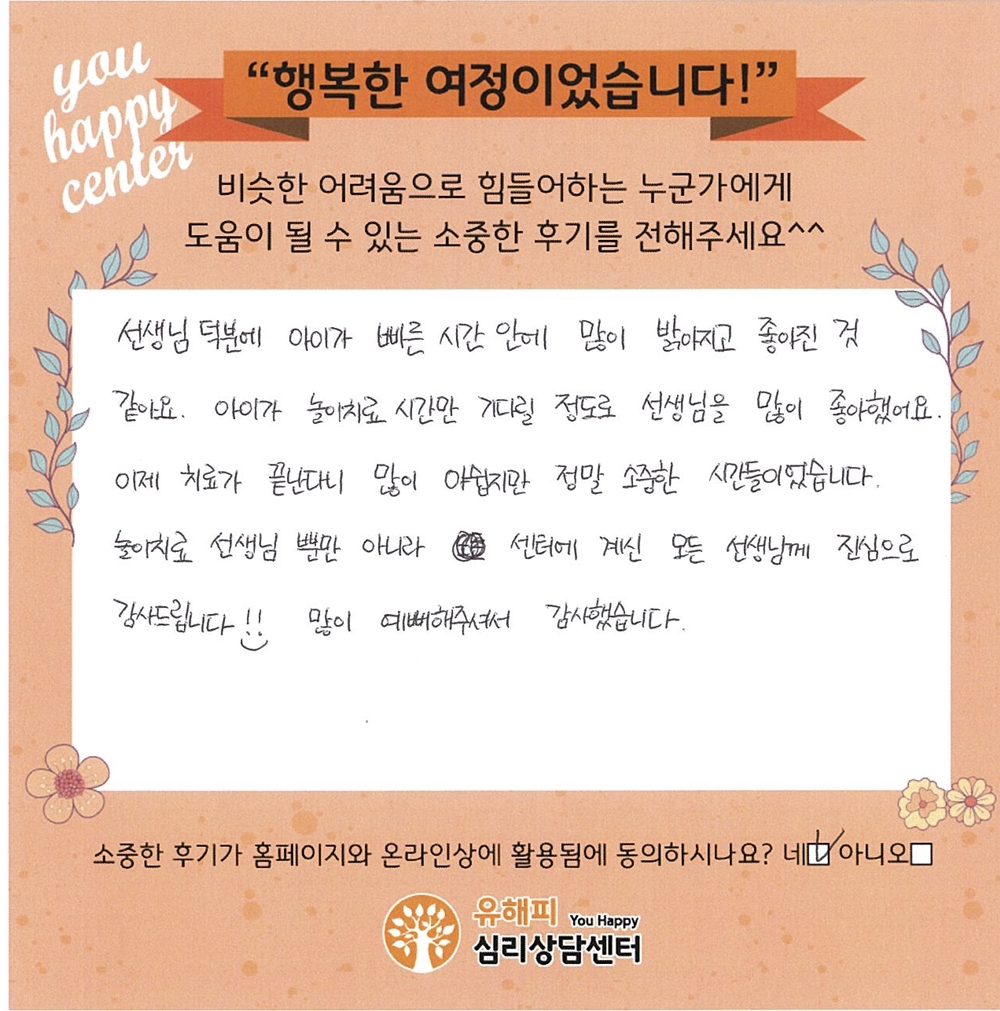 you
happy
center
“행복한 여정이었습니다!”
비슷한 어려움으로 힘들어하는 누군가에게
도움이 될 수 있는 소중한 후기를 전해주세요^^
선생님 덕분에 아이가 빠른 시간 안에 많이 밝아지고 좋아진 것
같아요. 아이가 놀이치료 시간만 기다릴 정도로 선생님을 많이 좋아했어요.
이제 치료가 끝난다니 많이 아쉽지만 정말 소중한 시간들이었습니다.
놀이치료 선생님 뿐만 아니라 센터에 계신 모든 선생님께 진심으로
감사드립니다!! 많이 예뻐해주셔서 감사했습니다.
소중한 후기가 홈페이지와 온라인상에 활용됨에 동의하시나요? 네☑ 아니오□
유해피 You Happy
심리상담센터